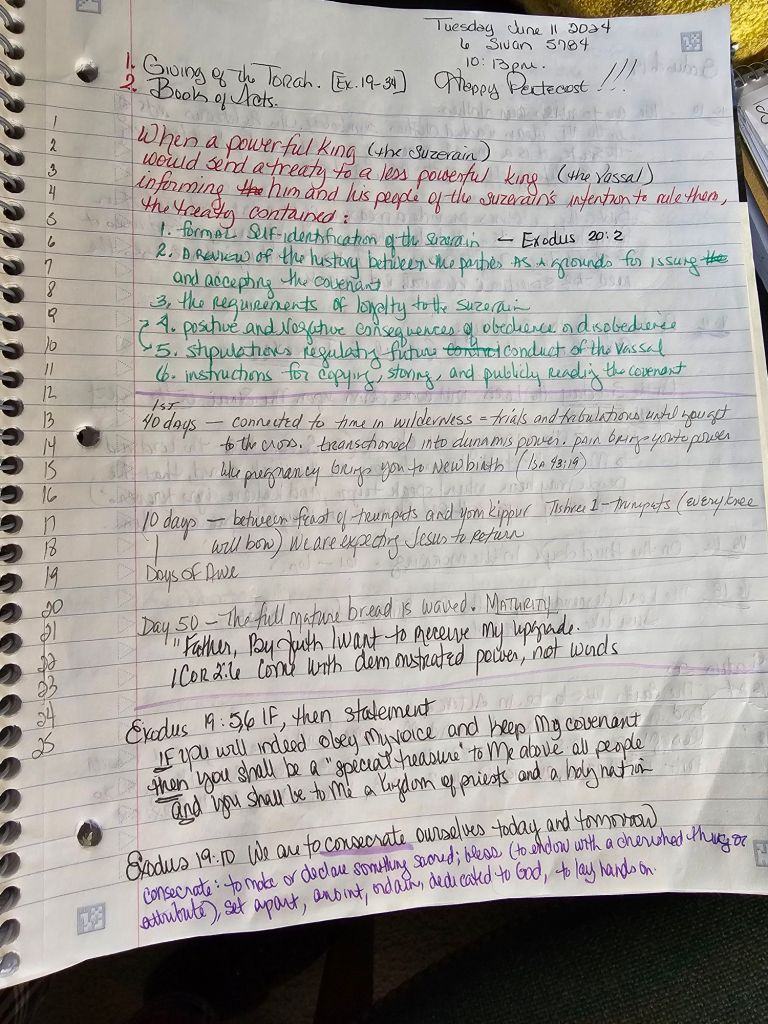 Tuesday June 11 2024
6 Sivan 5784
10:13pm.
1. Giving of the Torah. [Ex. 19-34] Happy Pentecost!!!
2. Book of Acts.
1
2 When a powerful king (the suzerain)
3 would send a treaty to a less powerful king (the vassal)
4 informing the him and his people of the suzerain's intention to rule them,
5 the treaty contained:
6 1. formal self-identification of the suzerain – Exodus 20:2
7 2. A review of the history between the parties as a grounds for issuing the
8 and accepting the covenant
9 3. the requirements of loyalty to the suzerain
10 4. positive and negative consequences of obedience or disobedience
11 5. stipulations regulating future control conduct of the vassal
12 6. instructions for copying, storing, and publicly reading the covenant
1st
13 40 days – connected to time in wilderness = trials and tribulations until you get
14 to the cross. transitioned into dunamis power. pain brings you to power
15 like pregnancy brings you to new birth (Isa 43:19)
16
17 10 days – between feast of trumpets and yom kippur Tishrei 1 – trumpets (every knee
18 will bow) we are expecting Jesus to return
19 Days of Awe
20
21 Day 50 – The full mature bread is waved. MATURITY
22 "Father, By faith I want to receive my upgrade.
23 1 Cor 2:6 Come with demonstrated power, not words
24
25
Exodus 19:5,6 IF, then statement
IF you will indeed obey My voice and keep My covenant
then you shall be a "special treasure" to Me above all people
and you shall be to Me a kingdom of priests and a holy nation
Exodus 19:10 We are to consecrate ourselves today and tomorrow
consecrate: to make or declare something sacred; bless (to endow with a cherished thing or
attribute), set apart, anoint, ordain, dedicated to God, to lay hands on.